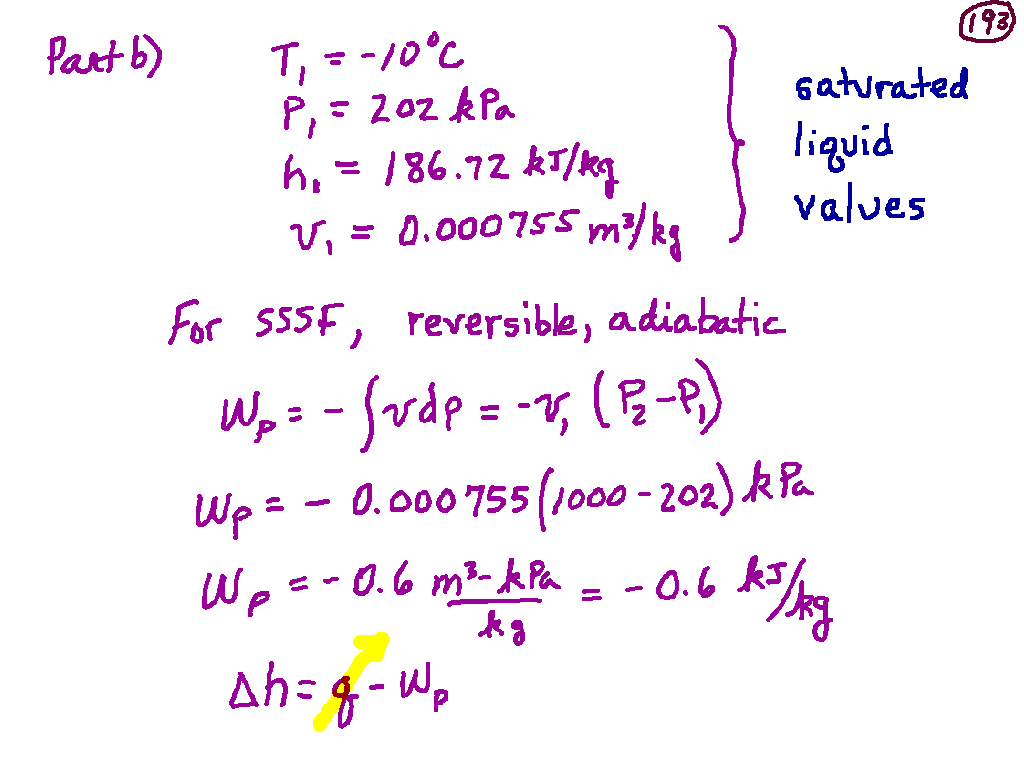 193
Part b) T₁ = -10°C
P₁ = 202 kPa
h₁ = 186.72 kJ/kg
v₁ = 0.000755 m³/kg
saturated
liquid
values
For SSSF, reversible, adiabatic
Wp = - ∫vdp = -v₁ (P₂-P₁)
Wp = - 0.000755(1000-202) kPa
Wp = - 0.6 m³-kPa/kg = - 0.6 kJ/kg
Δh = q - Wp